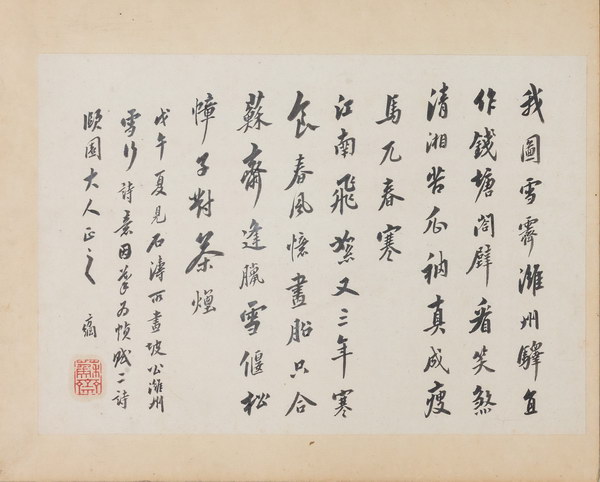 我圖雪霽濰州驛宜
作錢塘閤壁看笑煞
清湘苦瓜衲真成瘦
馬兀春寒
江南飛絮又三年寒
食春風憶畫船只合
蘇齋逢臘雪偃松
幛子對茶煙
戊午夏見石濤所畫坡公濰州
雪行詩意因摹為幀賦二詩
頤園大人正之